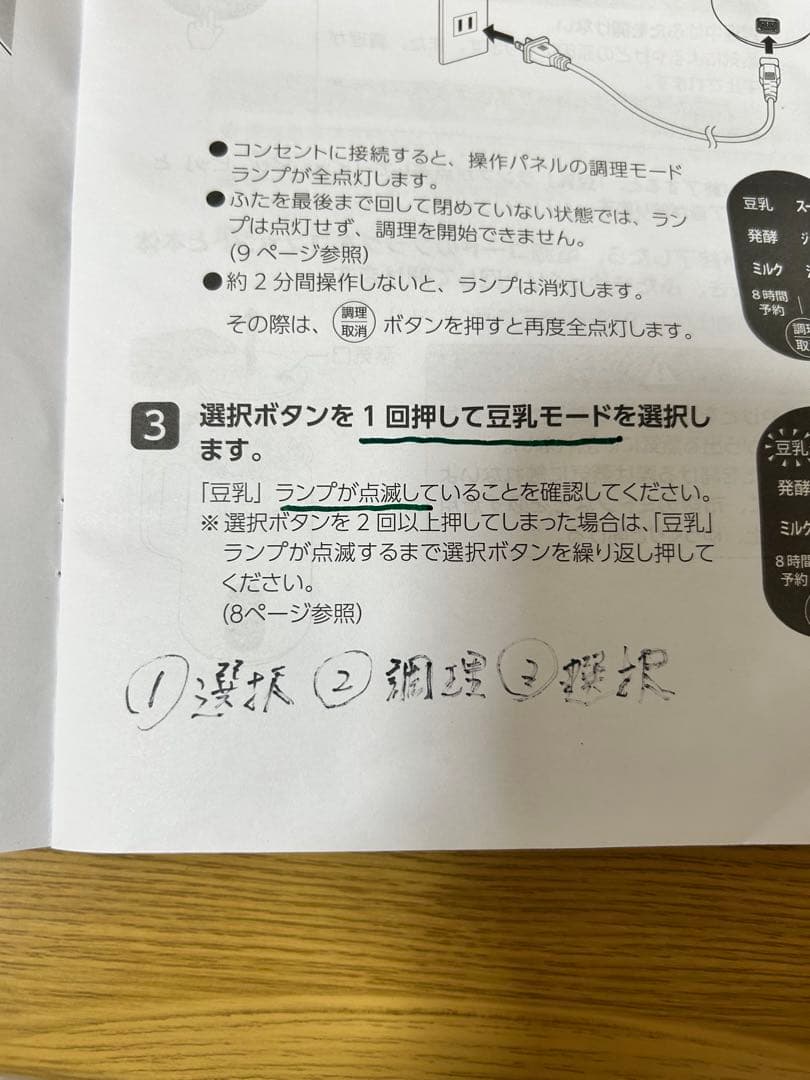 ●コンセントに接続すると、操作パネルの調理モード
ランプが全点灯します。
●ふたを最後まで回して閉めていない状態では、ラン
プは点灯せず、調理を開始できません。
(9ページ参照)
●約2分間操作しないと、ランプは消灯します。
その際は、調理取消ボタンを押すと再度全点灯します。
3 選択ボタンを1回押して豆乳モードを選択し
ます。
「豆乳」ランプが点滅していることを確認してください。
※選択ボタンを2回以上押してしまった場合は、「豆乳」
ランプが点滅するまで選択ボタンを繰り返し押して
ください。
(8ページ参照)
①選択 ②調理 ③選択
豆乳
発酵
ミルク
8時間
予約
豆乳
発酵
ミルク
8時間
予約